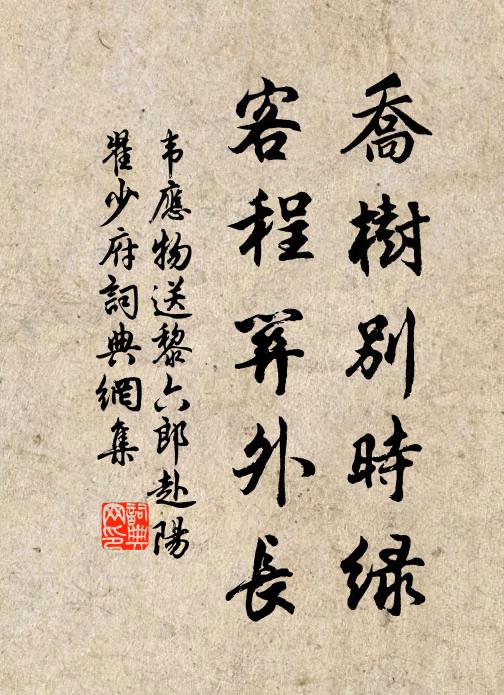 喬樹別時綠
客程関外長
韦應物送黎六郎赴陽
翟少府詞典網集
詞典網印